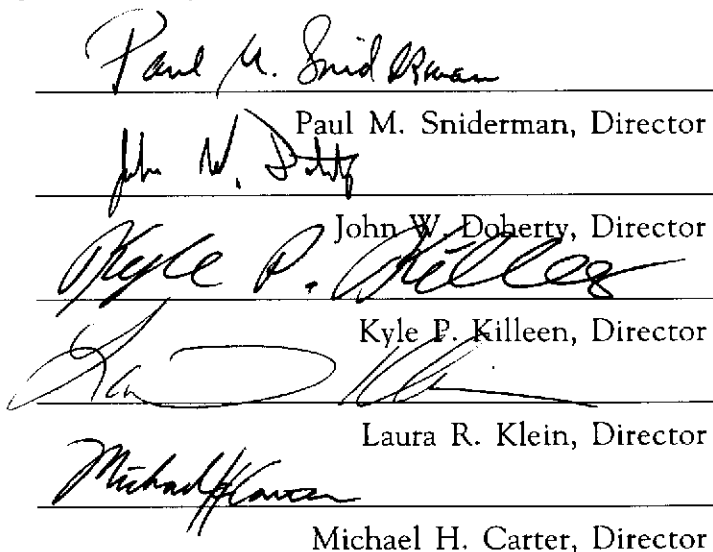 Paul M. Sniderman
Paul M. Sniderman, Director
John W. Doherty
John W. Doherty, Director
Kyle P. Killeen
Kyle P. Killeen, Director
Klein
Laura R. Klein, Director
Michael H Carter
Michael H. Carter, Director